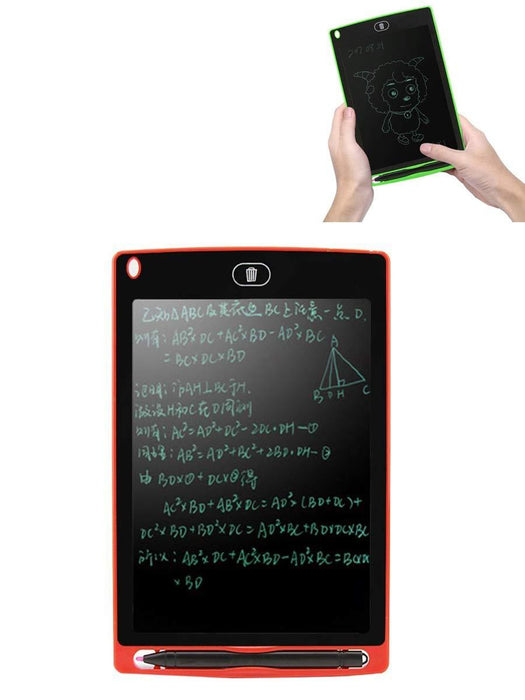 已知△ABC及其底边BC上任意一点D.
则有：AB²×DC+AC²×BD-AD²×BC
=BC×DC×BD
A
B D H C
证明：作AH⊥BC于H.
假设H和C在D同侧
则有：AC²=AD²+DC²-2DC·DH-①
同理：AB²=AD²+BC²+2BD·DH-②
由BD×①+DC×②得
AC²×BD+AB²×DC=AD²×(BD+DC)+
DC²×BD+BD²×DC=AD²×BC+BD×DC×BC
所以：AB²×DC+AC²×BD-AD²×BC=BC×DC
×BD